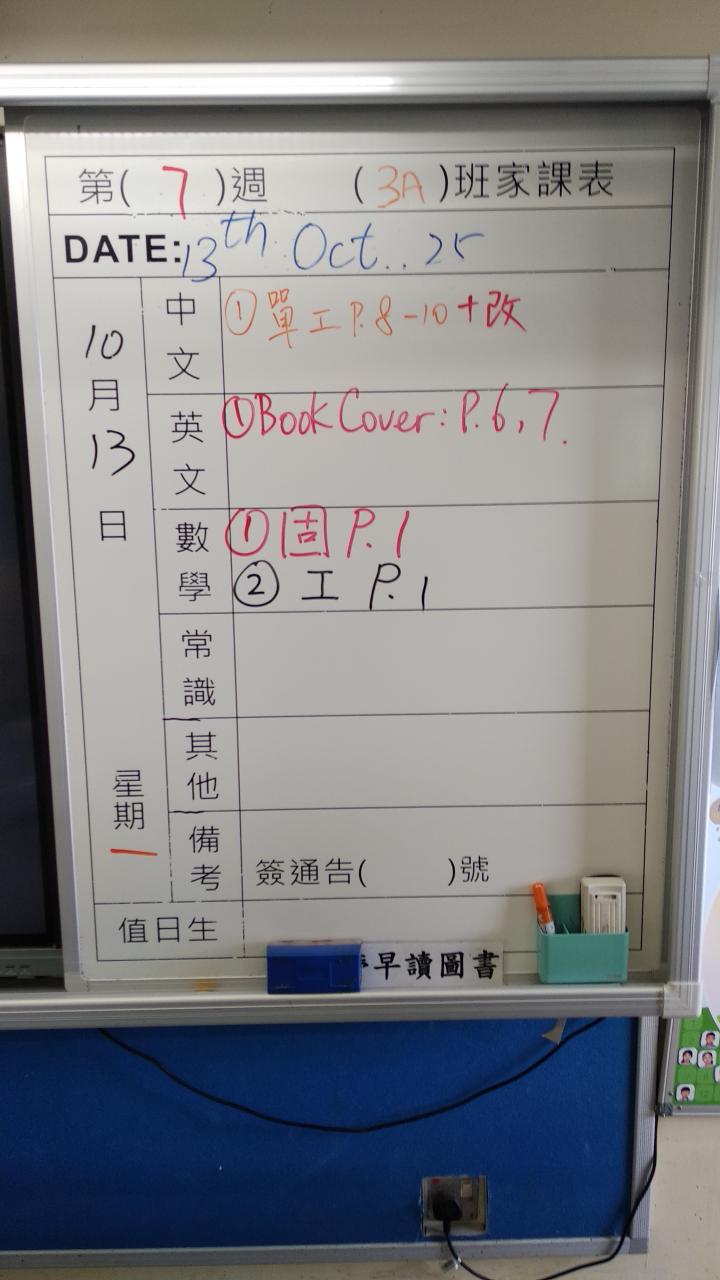 第( 7 )週 ( 3A )班家課表
DATE: 13th Oct.. 25
10月13日 星期一
中文 ①單工P.8-10+改
英文 ①Book Cover: P.6,7.
數學 ①固 P.1
②工 P.1
常識
其他
備考 簽通告( )號
值日生
早讀圖書